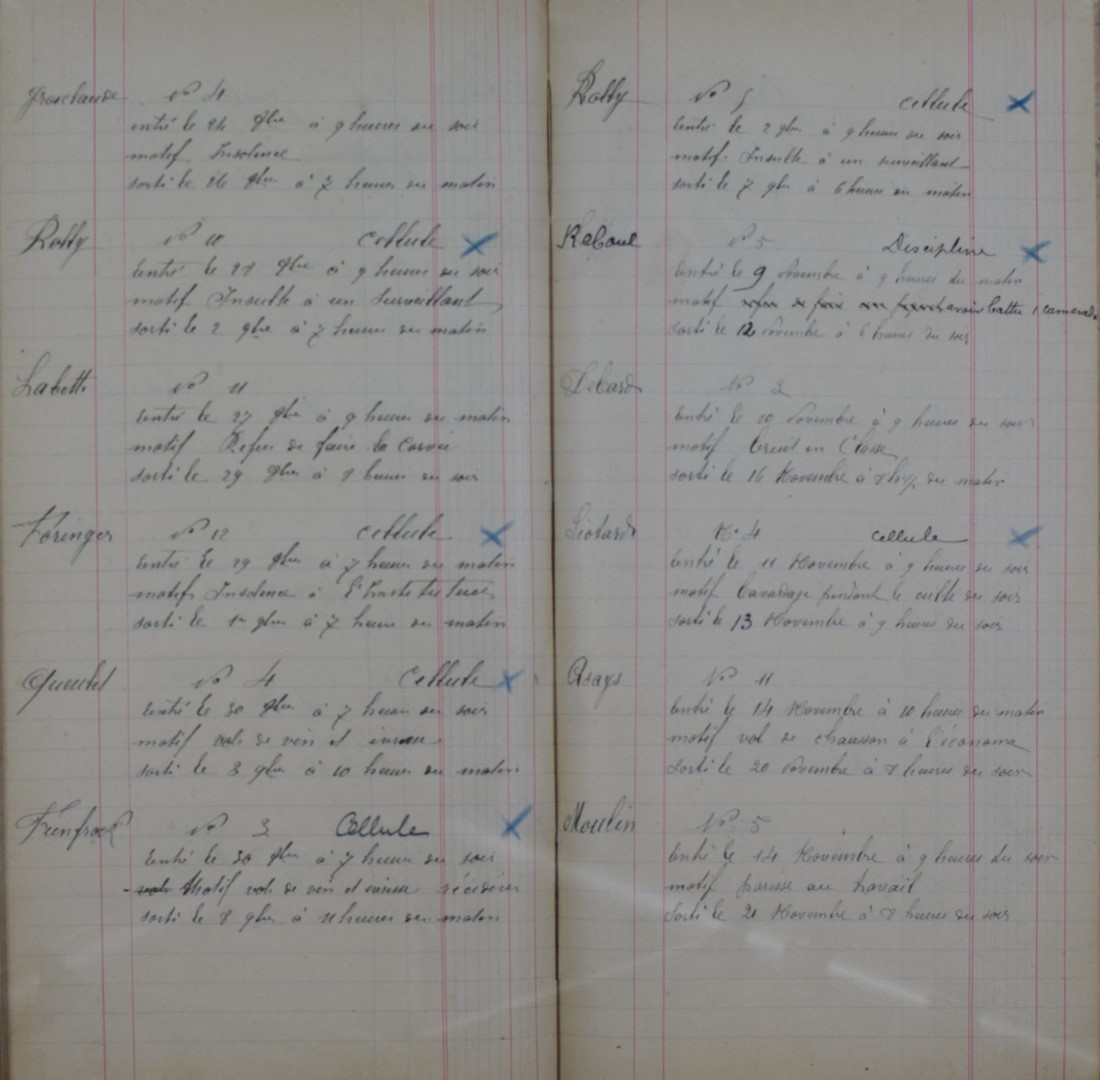 Froschaude No 4
entré le 24 8bre à 9 heures du soir
motif Insolence
sorti le 26 8bre à 7 heures du matin
Rolly No 11 cellule
Entré le 28 8bre à 9 heures du soir
motif Insulte à un surveillant
sorti le 2 9bre à 7 heures du matin
Labetti No 11
Entré le 27 8bre à 9 heures du matin
motif Refus de faire la corvée
sorti le 29 8bre à 8 heures du soir
Föringer No 12 cellule
Entré le 29 8bre à 7 heures du matin
motif Insolence à l'Instituteur
sorti le 1er 9bre à 7 heures du matin
No 4 Cellule
Entré le 30 8bre à 7 heures du soir
motif vols de vin et
sorti le 3 9bre à 10 heures du matin
No 3 Cellule
Entré le 30 8bre à 7 heures du soir
Motif vols de vin et
sorti le 8 9bre à 11 heures du matin
Rolly No 5 cellule
Entré le 2 9bre à 9 heures du soir
motif Insulte à un surveillant
sorti le 7 9bre à 6 heures du matin
Reboul No 5 Discipline
Entré le 9 Novembre à 9 heures du matin
motif avoir battu 1 camarade
sorti le 12 Novembre à 6 heures du soir
No 2
Entré le 10 Novembre à 9 heures du soir
motif bruit en Classe
sorti le 16 Novembre à du matin
Liotard No 4 cellule
Entré le 11 Novembre à 9 heures du soir
motif bavardage pendant le culte du soir
sorti le 13 Novembre à 9 heures du soir
Asays No 11
Entré le 14 Novembre à 10 heures du matin
motif vol de chausson à l'économa
sorti le 20 Novembre à 8 heures du soir
Moulin No 5
Entré le 14 Novembre à 9 heures du soir
motif paresse au travail
sorti le 21 Novembre à 8 heures du soir